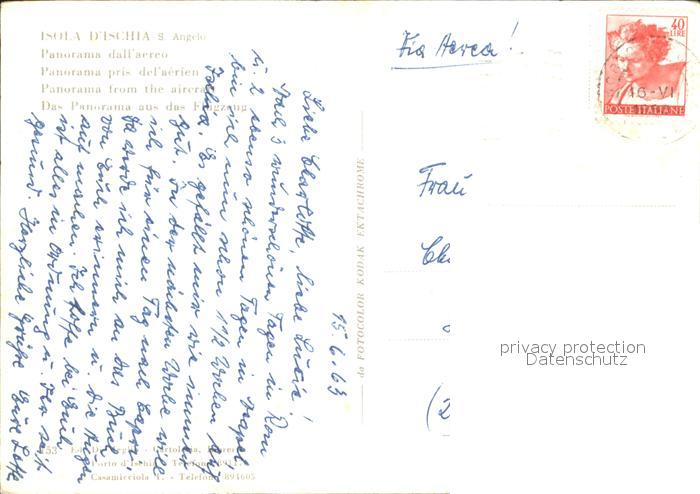 ISOLA D'ISCHIA - S. Angelo
Panorama dall'aereo
Panorama pris del'aérien
Panorama from the aircra
Das Panorama aus das Flugzeug
15.6.63
Liebe Charlotte, liebe Luzie!
Nach 3 wunderschönen Tagen in Rom
u. 2 ebenso schönen Tagen in Neapel
bin ich nun schon 1 1/2 Wochen auf
Ischia. Es gefällt mir wie immer
gut. In der nächsten Woche will
ich für einen Tag nach Capri.
Da werde ich mich an das Buch
von Euch erinnern u. die Augen
auf machen. Ich hoffe bei Euch
ist alles in Ordnung u. Ihr seit
gesund. Herzliche Grüße Eure Lotte
da FOTOCOLOR KODAK EKTACHROME
Via Aerea!
40
LIRE
16-VI
POSTE ITALIANE
Frau
Ch
(2
privacy protection
Datenschutz
153
Porto d'Ischia Telefono
Casamicciola T. - Telefono 894605